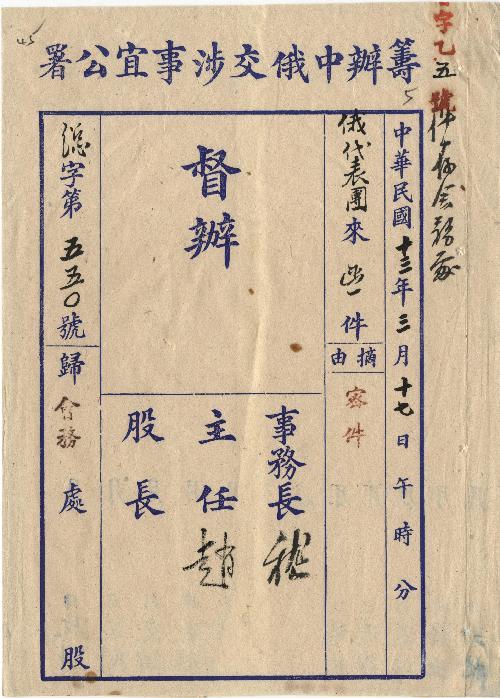 籌辦中俄交涉事宜公署
字乙五號
件存会務處
5
45
中華民國十三年三月十七日午時分
俄代表團來函一件
摘由
密件
督辦
事務長 嵇
主任 趙
股長
總字第五五〇號
歸會務處 股